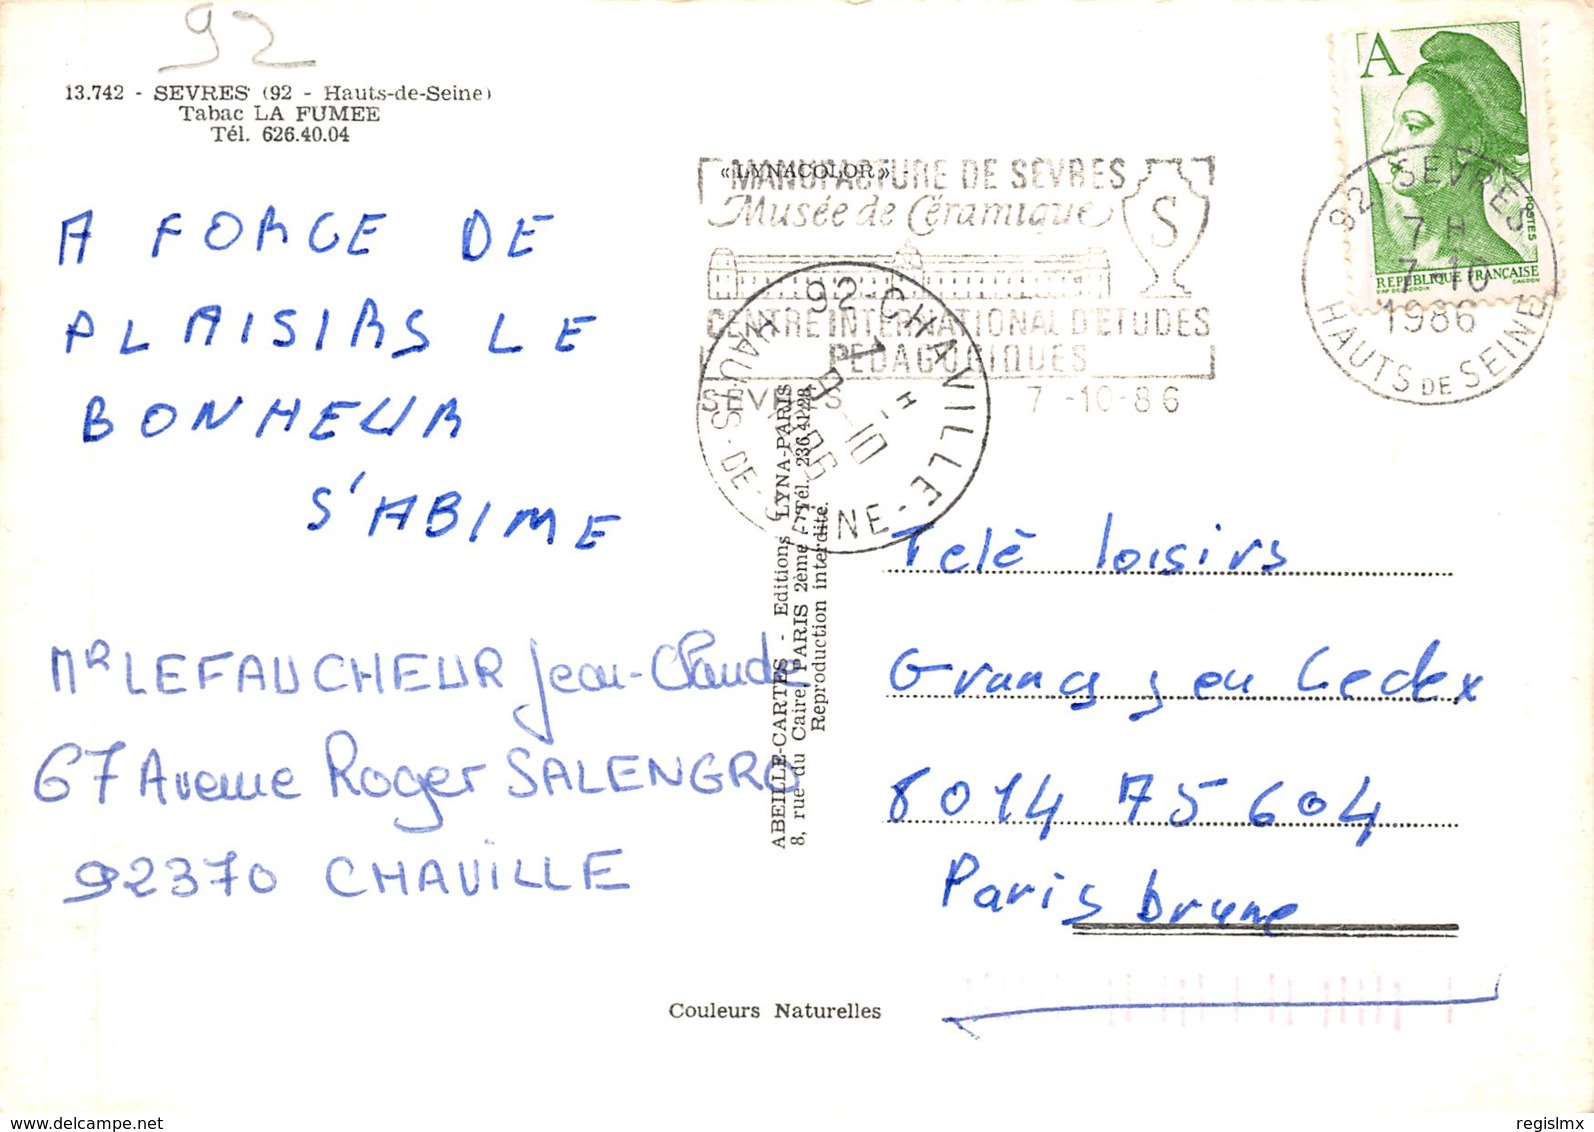 92
13.742 - SEVRES (92 - Hauts-de-Seine)
Tabac LA FUMEE
Tél. 626.40.04
A FORCE DE
PLAISIRS LE
BONHEUR
S'ABIME
Mr LEFAUCHEUR Jean-Claude
67 Avenue Roger SALENGRO
92370 CHAVILLE
« LYNACOLOR »
MANUFACTURE DE SEVRES
Musée de Céramique
S
CENTRE INTERNATIONAL D'ETUDES
PEDAGOGIQUES
SEVRES 7 -10-86
92-CHAVILLE
HAUTS-DE-SEINE
A
POSTES
REPUBLIQUE FRANÇAISE
GANDON
92 SEVRES
7 H
7 -10
1986
HAUTS DE SEINE
ABEILLE-CARTES - Editions LYNA-PARIS
8, rue du Caire, PARIS 2ème - Tél. 236.41.28
Reproduction interdite.
Telé loisirs
en Cedex
6014 75604
Paris brune
Couleurs Naturelles
regislmx